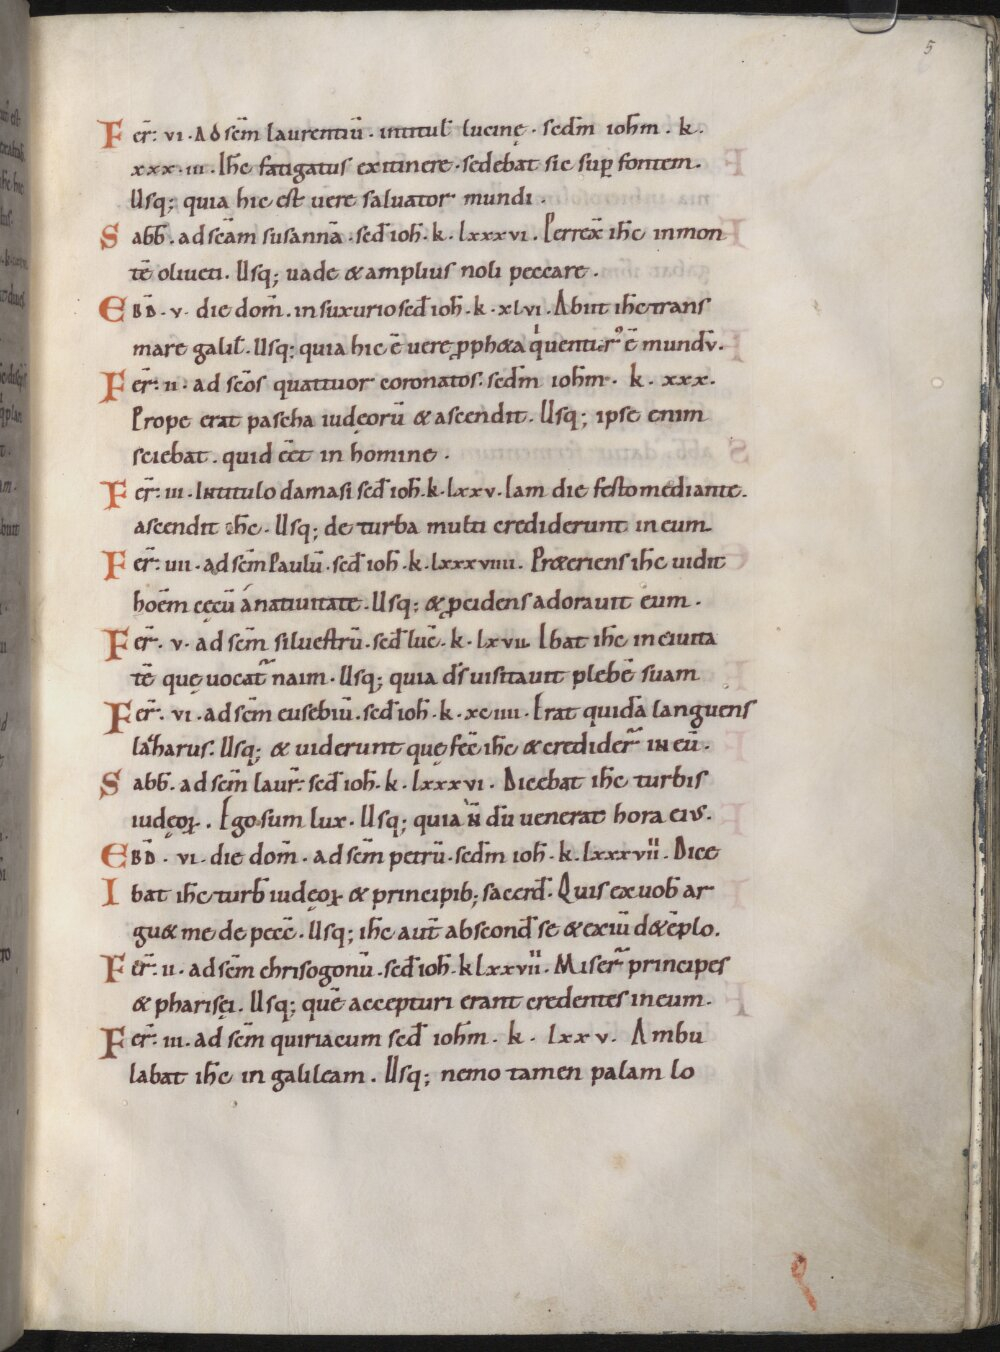 5
Fer̄. vi. Ad sc̄m laurentiū. intitul̄ lucinę. sed̄m ioh̄m. k.
xxx.iii. Ih̄c fatigatus exitinere. sedebat sic sup̱ fontem.
Usq; quia hic est vere salvator mundi.
Sabb̄. ad scām susannā. sed̄ ioh̄. k. lxxxvi. Perrex̄ ih̄c inmon
tē oliveti. Usq; vade & amplius noli peccare.
Ebd̄. v. die dom̄. in suxurio sed̄ ioh̄. k. xlvi. Abiit ih̄c trans
mare galil̄. Usq; quia hic ē vere ꝓph&a q venturꝰ ē mundū.
Fer̄. ii. ad scōs quattuor coronatos. sed̄m ioh̄m. k. xxx.
Prope erat pascha iudęorū & ascendit. Usq; ipse enim
sciebat. quid ēet in homine.
Fer̄. iii. Intitulo damasi sed̄ ioh̄. k. lxxv. Iam die festo mediante.
ascendit ih̄c. Usq; de turba multi crediderunt in eum.
Fer̄. iiii. ad sc̄m Paulū. sed̄ ioh̄. k. lxxxviiii. Pr&eriens ih̄c vidit
hoēm cęcū a nativitate. Usq; & ꝓcidens adoravit eum.
Fer̄. v. ad sc̄m silvestrū. sed̄ luc̄. k. lxvii. Ibat ih̄c in civita
tē quę vocat̄ naim. Usq; quia d̄s visitavit plebē suam
Fer̄. vi. ad sc̄m eusebiū. sed̄ ioh̄. k. xciiii. Erat quidā languens
lazharus. Usq; & viderunt quę fec̄ ih̄c & credider̄ in eū.
Sabb̄. ad sc̄m laur̄. sed̄ ioh̄. k. lxxxvi. Dicebat ih̄c turbis
iudęoꝝ. Ego sum lux. Usq; quia n̄ dū venerat hora eius.
Ebd̄. vi. die dom̄. ad sc̄m petrū. sed̄m ioh̄. k. lxxxvii. Dice
I bat ih̄c turb̄ iudęoꝝ & principib; sacerd̄. Quis ex vob̄ ar
gu& me de pecc̄. Usq; ih̄c aut̄ abscond̄ se & exiū d& ēplo.
Fer̄. ii. ad sc̄m chrisogonū. sed̄ ioh̄. k lxxvii. Miser̄ principes
& pharisęi. Usq; quē accepturi erant credentes in eum.
Fer̄. iii. ad sc̄m quiriacum sed̄ ioh̄m. k. lxxv. Ambu
labat ih̄c in galileam. Usq; nemo tamen palam lo